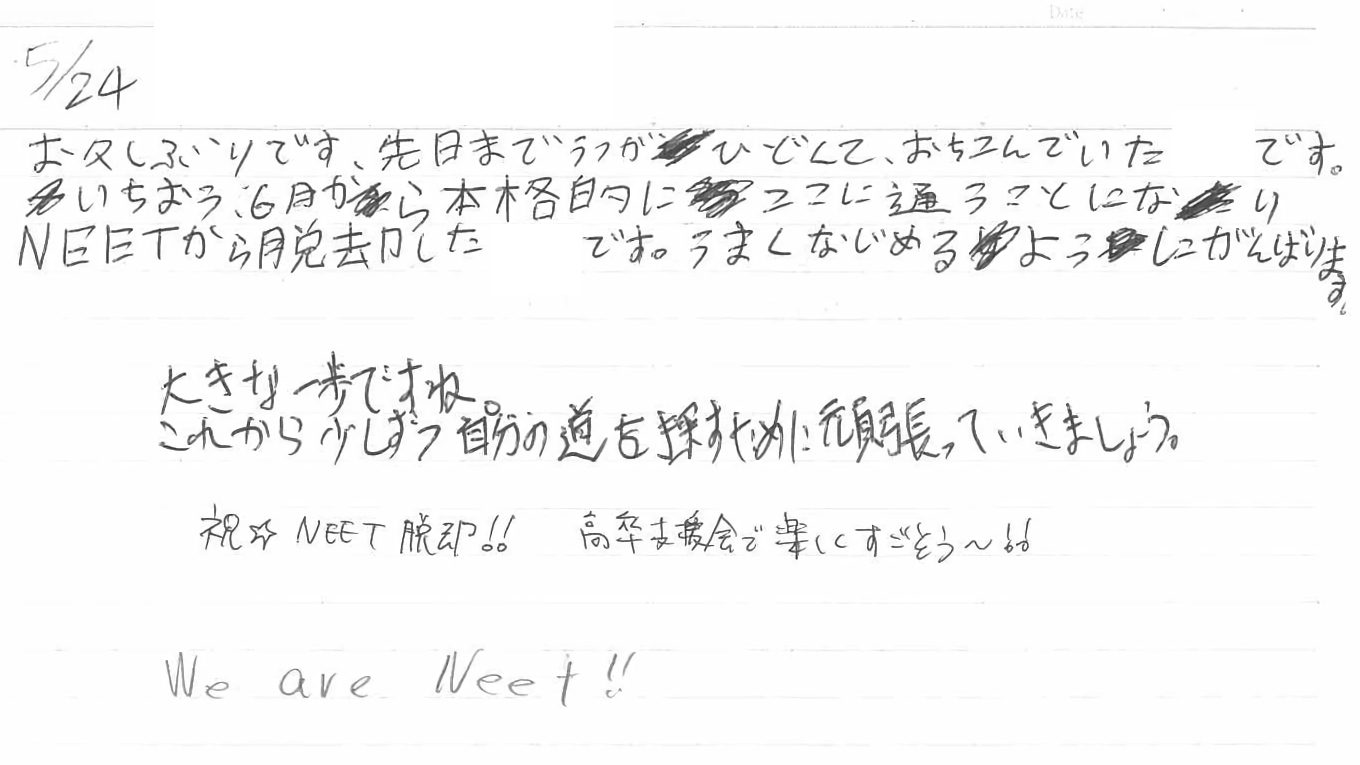 Date
5/24
お久しぶりです、先日までうつがひどくて、おちこんでいた です。
いちおう、6月から本格的にここに通うことになり
NEETから脱却した です。うまくなじめるようにがんばります。
大きな一歩ですね。
これから少しずつ自分の道を探すために頑張っていきましょう。
祝☆ NEET脱却!! 高卒支援会で楽しくすごそう〜!!
We are Neet!!